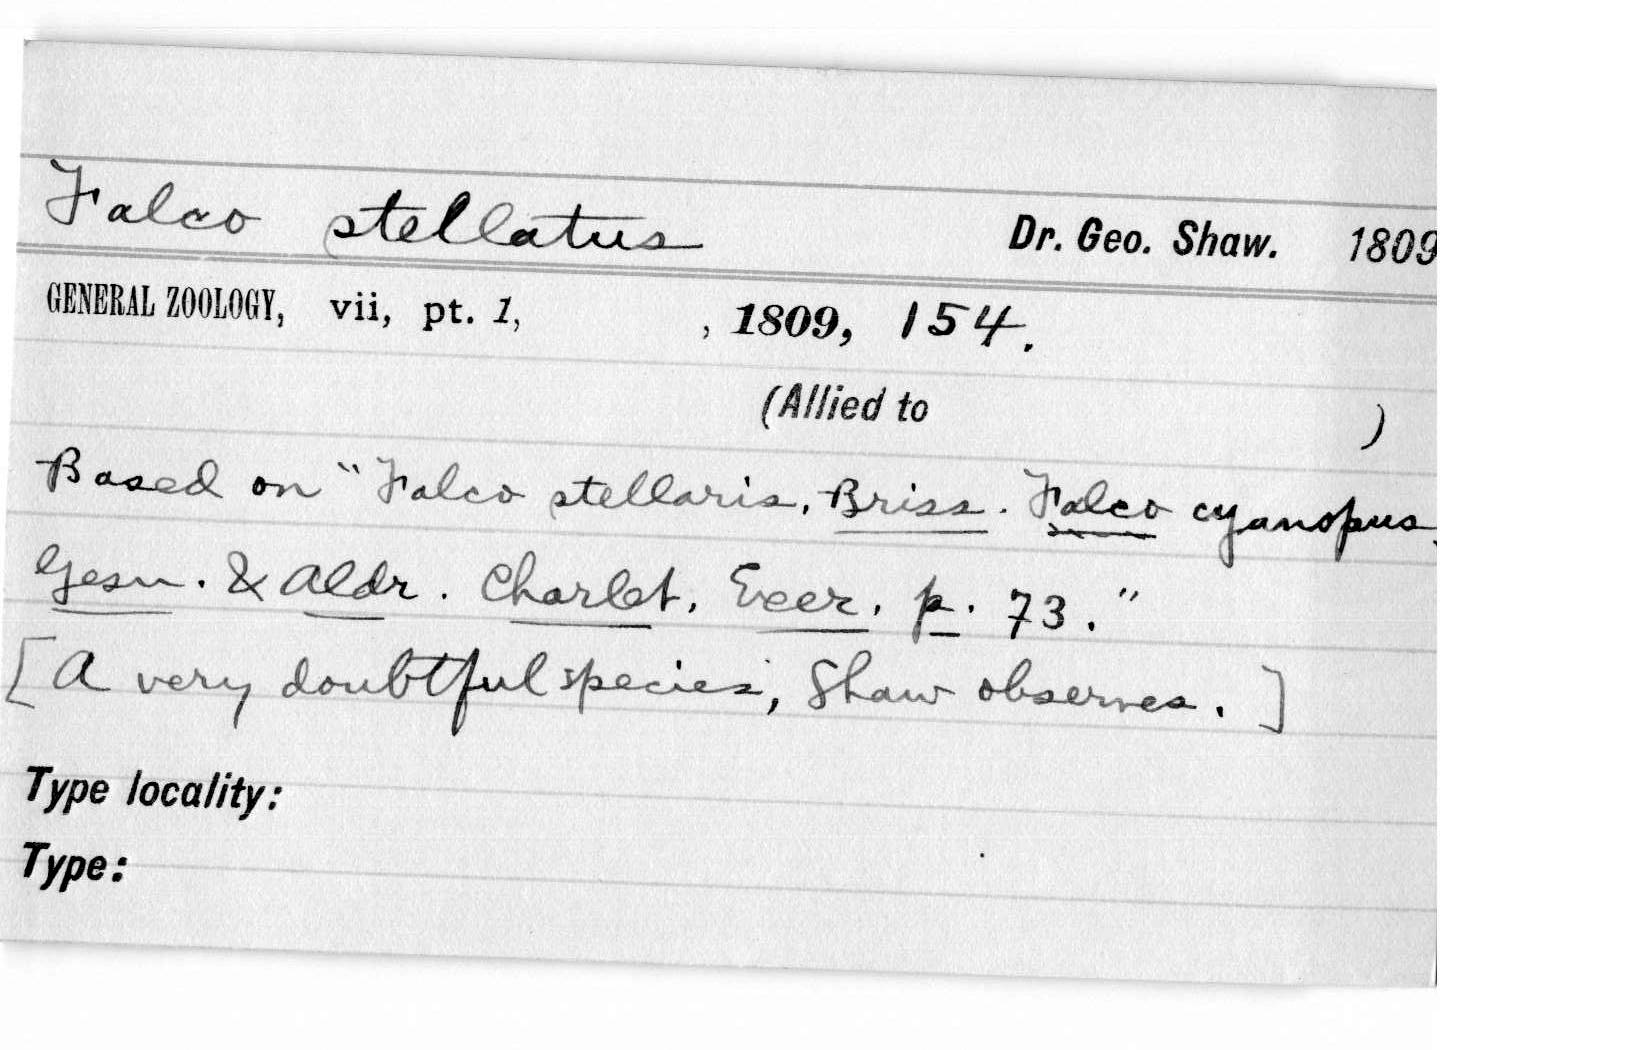 Falco stellatus Dr. Geo. Shaw. 1809
GENERAL ZOOLOGY, vii, pt. 1, , 1809, 154.
(Allied to )
Based on "Falco stellaris, Briss. Falco cyanopus,
Gesn. & Aldr. Charlet. Exer. p. 73."
[A very doubtful species, Shaw observes.]
Type locality:
Type: